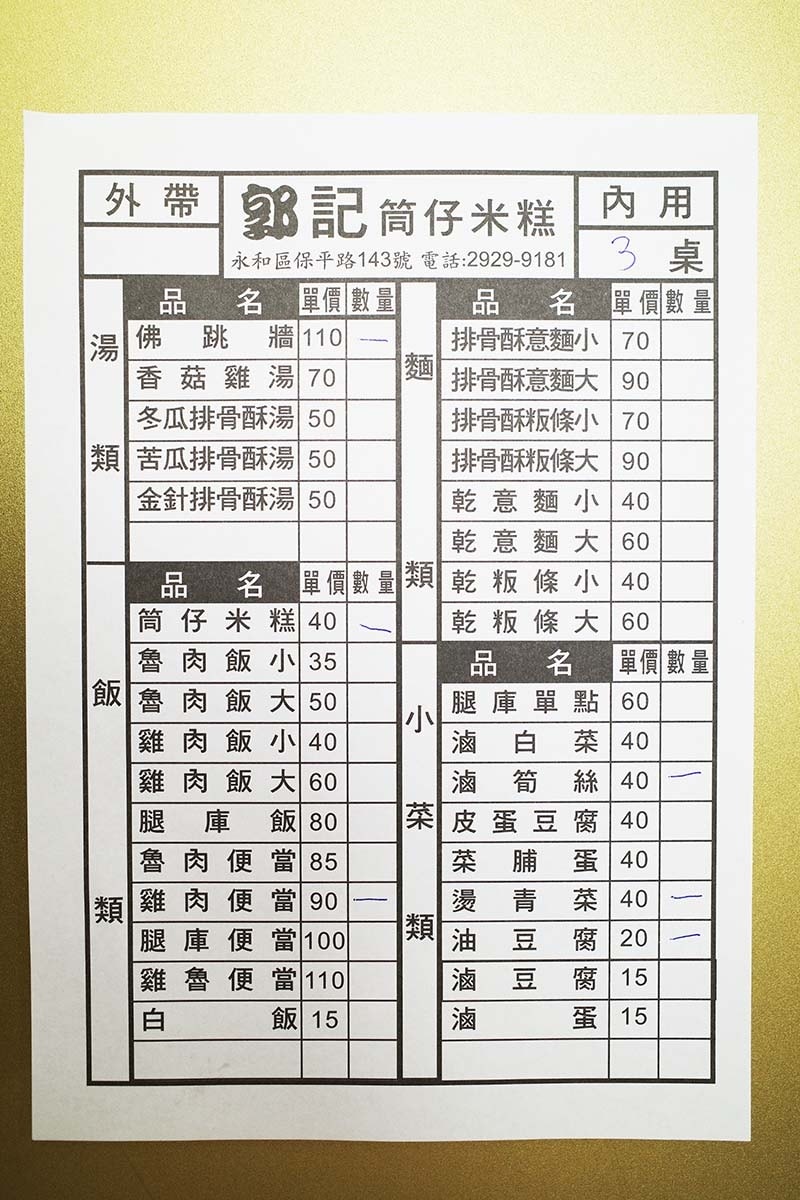 外帶
郭記筒仔米糕
永和區保平路143號 電話:2929-9181
內用
3 桌
湯類
品名 單價 數量
佛跳牆 110 一
香菇雞湯 70
冬瓜排骨酥湯 50
苦瓜排骨酥湯 50
金針排骨酥湯 50
飯類
品名 單價 數量
筒仔米糕 40 一
魯肉飯小 35
魯肉飯大 50
雞肉飯小 40
雞肉飯大 60
腿庫飯 80
魯肉便當 85
雞肉便當 90 一
腿庫便當 100
雞魯便當 110
白飯 15
麵類
品名 單價 數量
排骨酥意麵小 70
排骨酥意麵大 90
排骨酥粄條小 70
排骨酥粄條大 90
乾意麵小 40
乾意麵大 60
乾粄條小 40
乾粄條大 60
小菜類
品名 單價 數量
腿庫單點 60
滷白菜 40
滷筍絲 40 一
皮蛋豆腐 40
菜脯蛋 40
燙青菜 40 一
油豆腐 20 一
滷豆腐 15
滷蛋 15